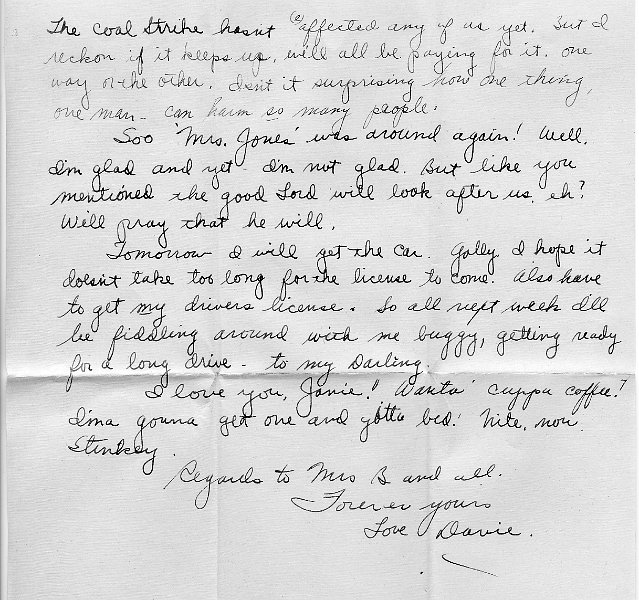 The coal Strike hasn't (e) affected any of us yet. But I
reckon if it keeps up, we'll all be paying for it. one
way or the other. Isn't it surprising how one thing,
one man - can harm so many people.
Soo 'Mrs. Jones' was around again! Well.
I'm glad and yet - I'm not glad. But like you
mentioned the good Lord will look after us, eh?
We'll pray that he will.
Tomorrow I will get the car. Golly I hope it
doesn't take too long for the license to come. Also have
to get my drivers license. So all next week I'll
be fiddling around with me buggy, getting ready
for a long drive - to my Darling.
I love you, Janie! Wanta' cuppa coffee?
I'ma gonna get one and gotta bed. Nite, now
Stinkey.
Regards to Mrs B and all.
Forever yours
Love Davie.